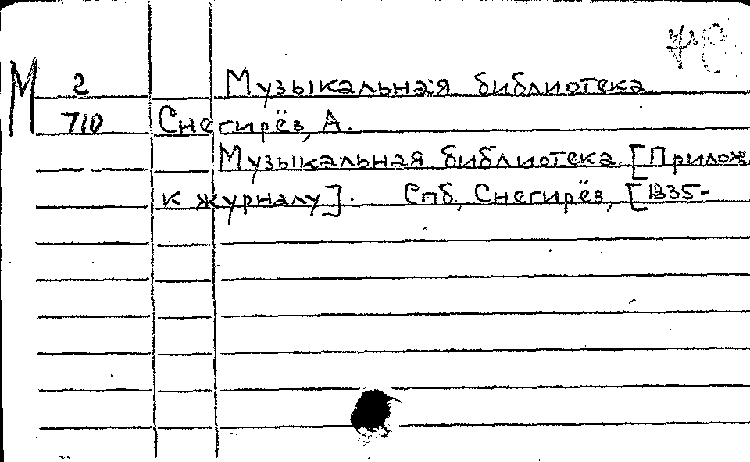 М 2 Музыкальная библиотека
710 Снегирёв, А.
Музыкальная библиотека [Прилож.
к журналу]. Спб, Снегирёв, [1835-